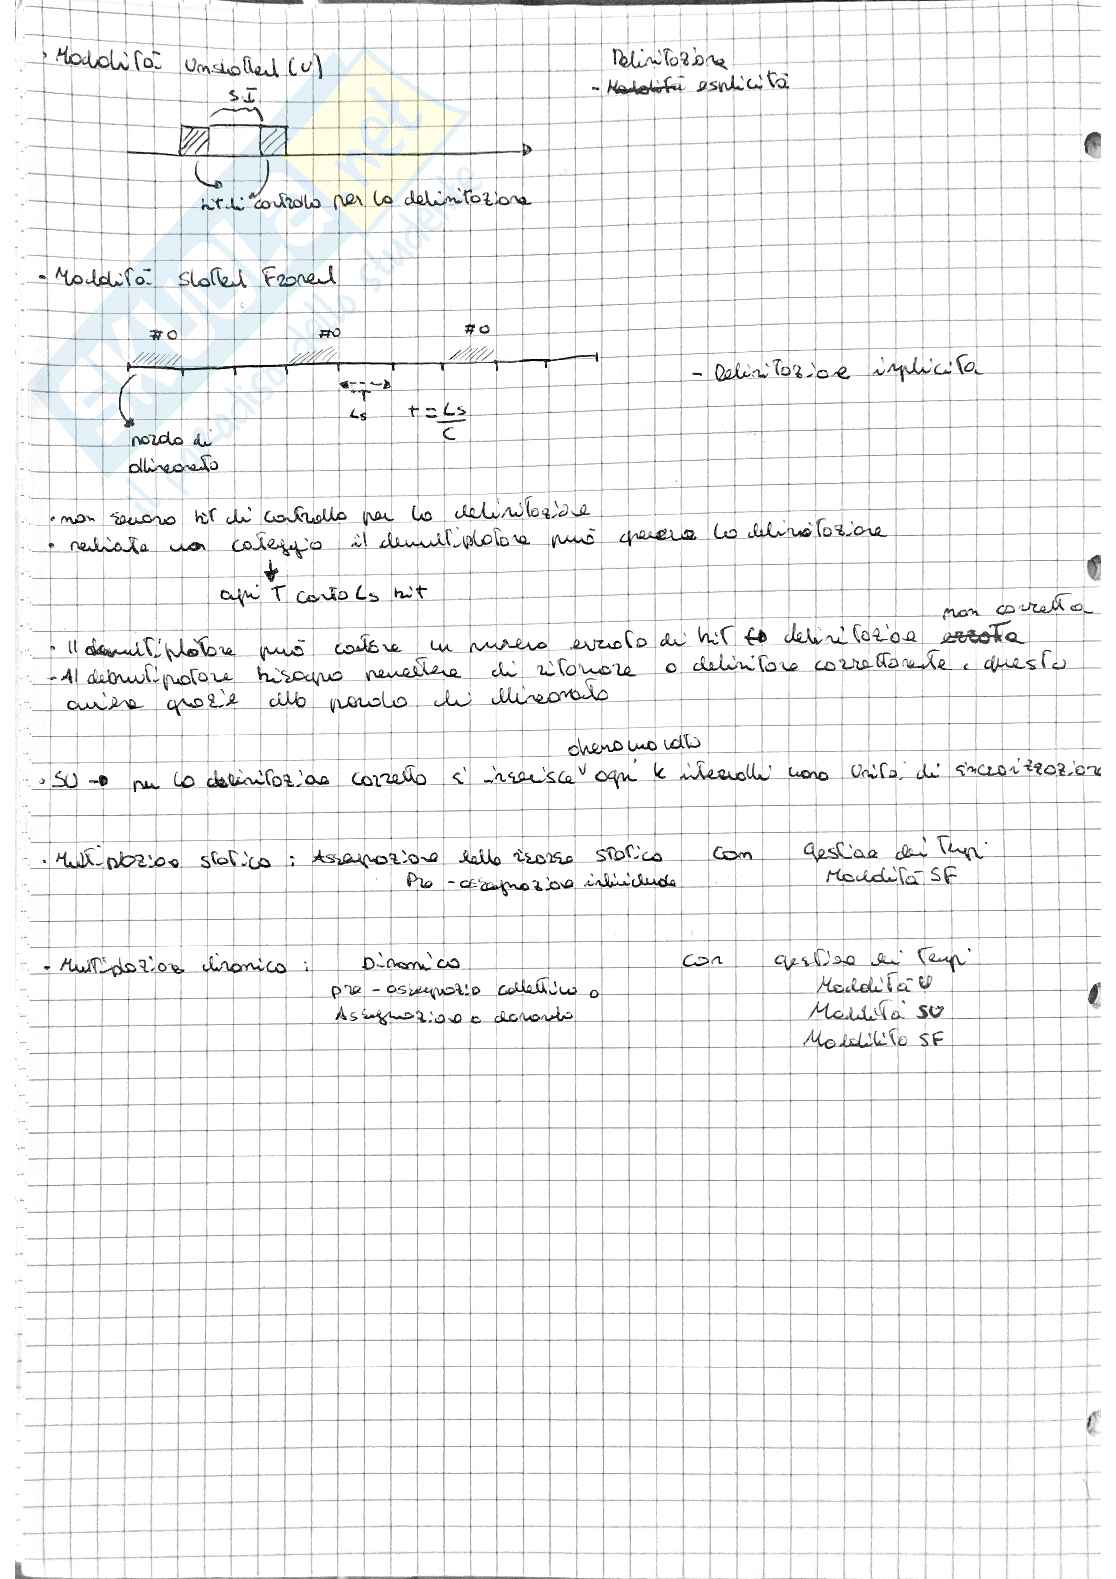 · Modalità Unslotted (U)
Delimitazione
- Modalità esplicita
S.I
bit di controllo per la delimitazione
- Modalità Slotted Framed
#0 #0 #0
- Delimitazione implicita
Ls t = Ls/C
parola di
allineamento
· non servono bit di controllo per la delimitazione
· mediante un conteggio il demultiplatore può operare la delimitazione
ogni T conto Ls bit
non corretta
· Il demultiplatore può contare un numero errato di bit to delimitazione errata
- Al demultiplatore bisogna permettere di ritornare a delimitare correttamente, questo
avviene grazie alla parola di allineamento
chenomoidto
· SU → per la delimitazione corretta si inserisce ogni k intervalli una Unità di sincronizzazione
· Multiplazione statica : Assegnazione della risorsa statica con gestione dei tempi
Pre - assegnazione individuale Modalità SF
- Multiplazione dinamica : Dinamica con gestione dei tempi
pre - assegnazio collettiva o Modalità U
Assegnazione a domanda Modalità SU
Modalità SF